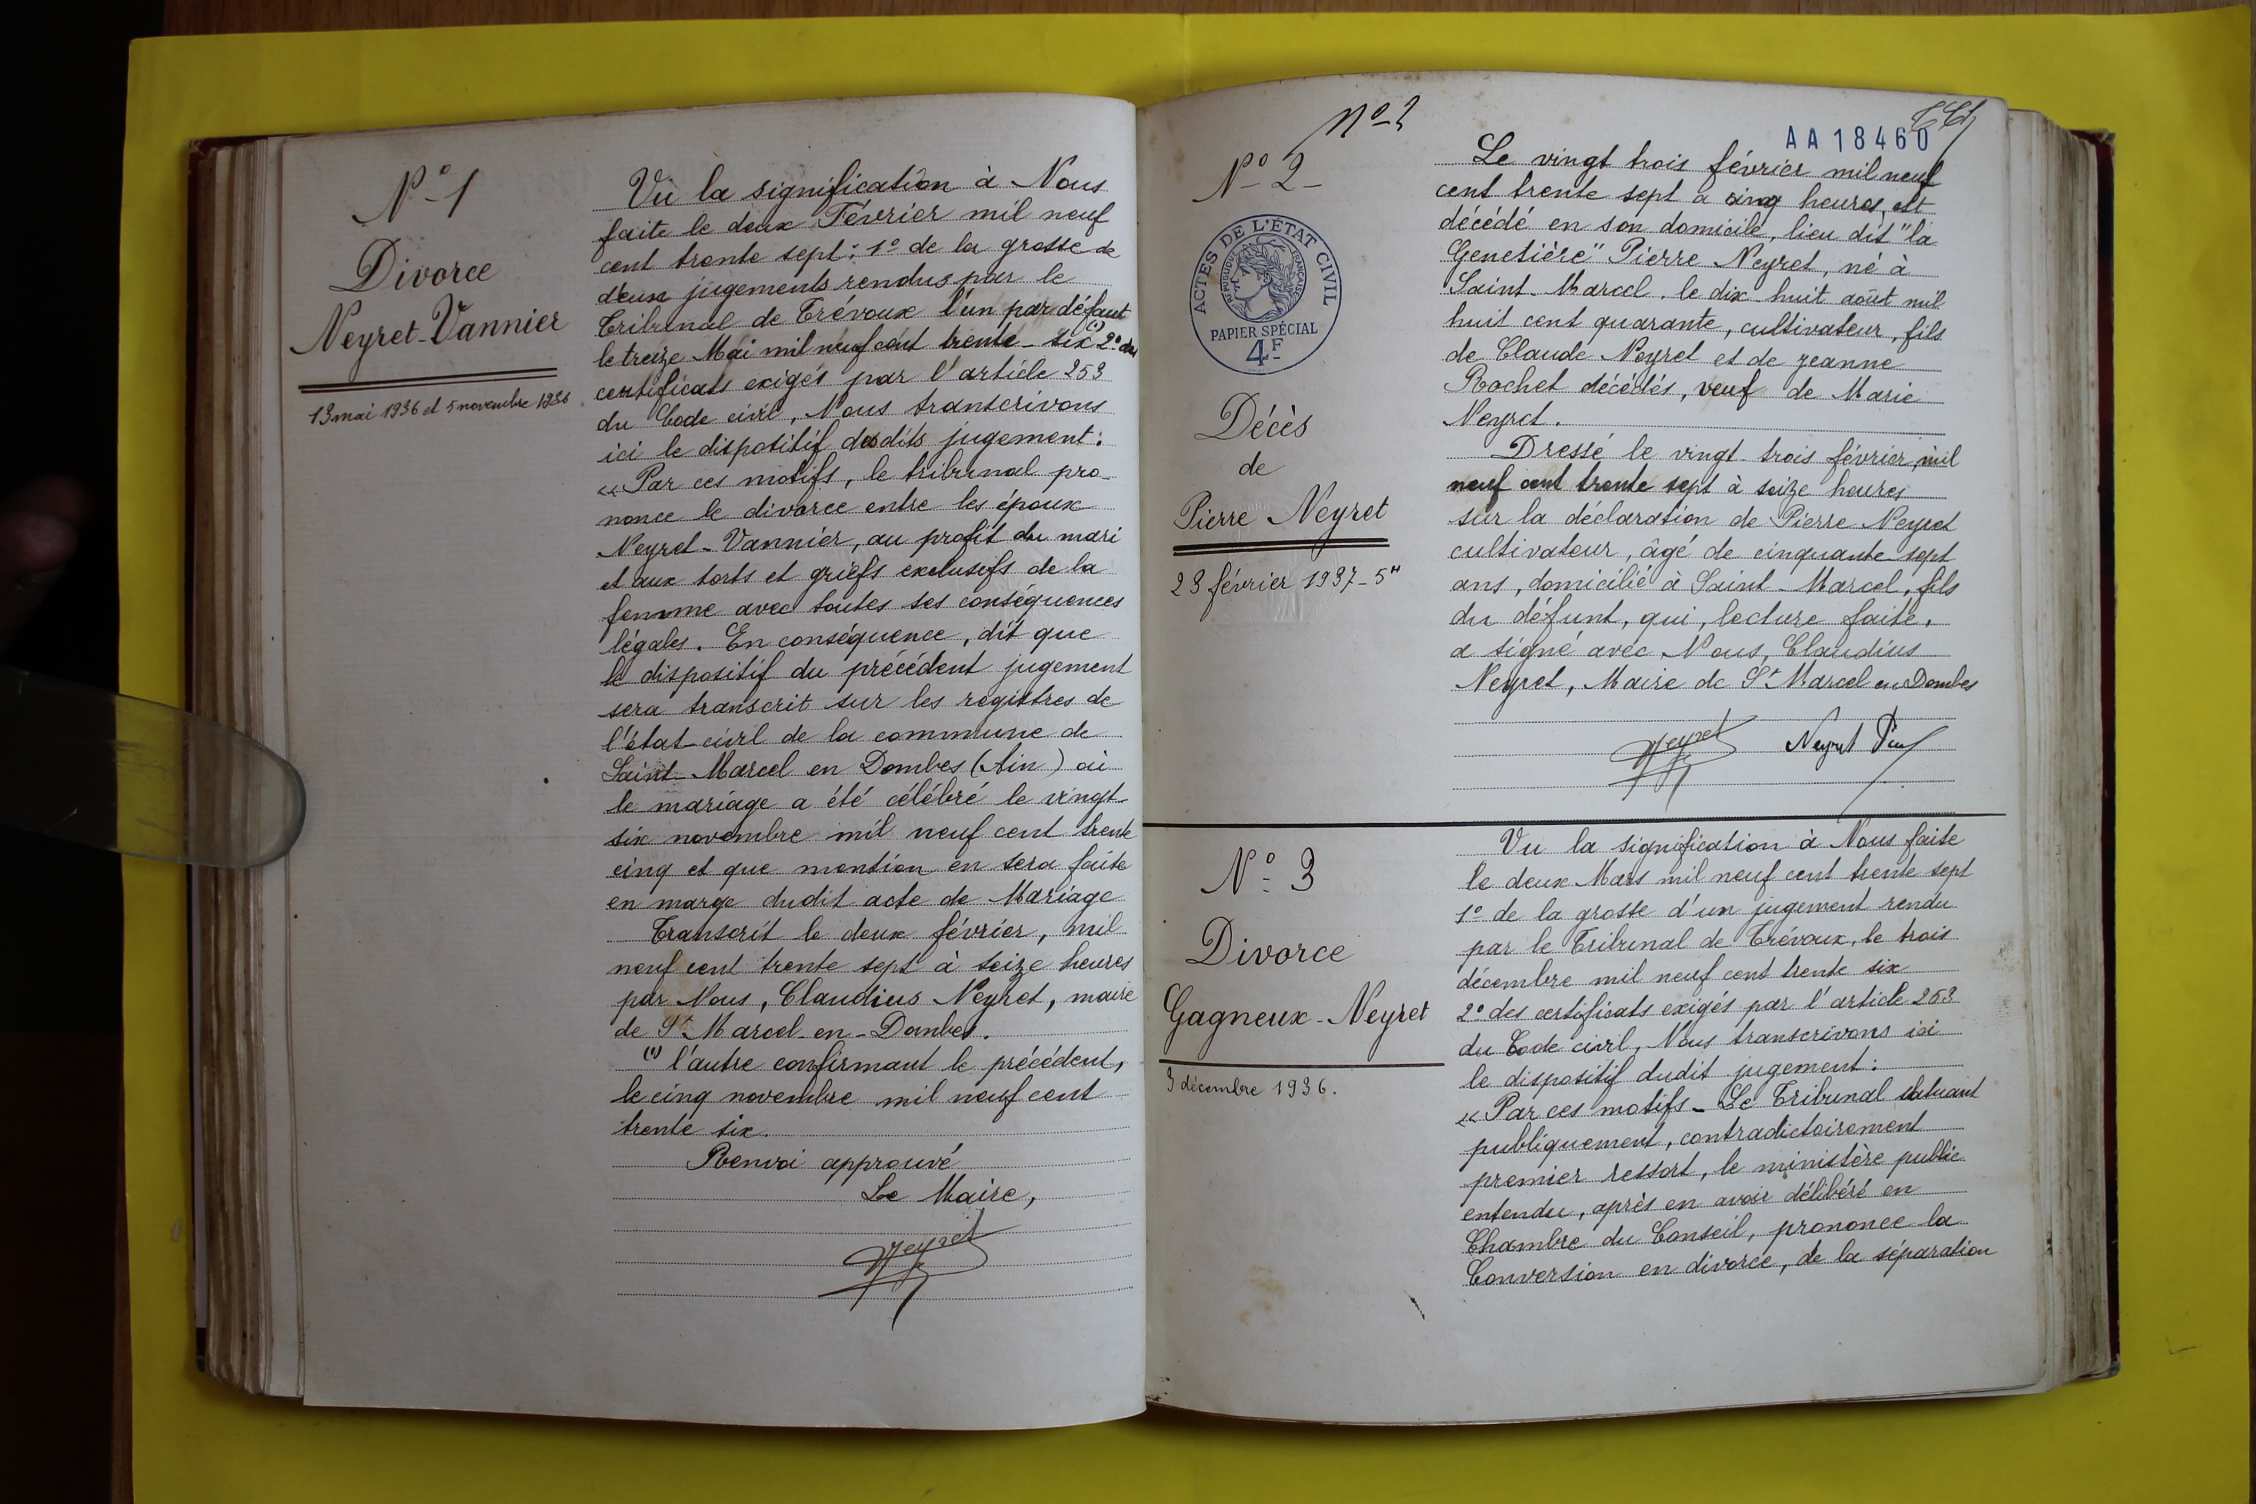 N° 1
Divorce
Neyret-Vannier
13 mai 1936 et 5 novembre 1936
Vu la signification à Nous
faite le deux Février mil neuf
cent trente sept : 1° de la grosse de
deux jugements rendus par le
Tribunal de Trévoux l'un par défaut
le treize Mai mil neuf cent trente-six (1) 2° des
certificats exigés par l'article 253
du Code civil, Nous transcrivons
ici le dispositif desdits jugement :
« Par ces motifs, le tribunal pro-
nonce le divorce entre les époux
Neyret-Vannier, au profit du mari
et aux torts et griefs exclusifs de la
femme avec toutes ses conséquences
légales. En conséquence, dit que
le dispositif du précédent jugement
sera transcrit sur les registres de
l'état-civil de la commune de
Saint-Marcel en Dombes (Ain) où
le mariage a été célébré le vingt-
six novembre mil neuf cent trente
cinq et que mention en sera faite
en marge dudit acte de Mariage
Transcrit le deux février, mil
neuf cent trente sept à seize heures
par Nous, Claudius Neyret, maire
de St Marcel-en-Dombes.
(1) l'autre confirmant le précédent,
le cinq novembre mil neuf cent
trente six.
Renvoi approuvé
Le Maire,
Neyret
N° 2
AA18460
N° 2
ACTES DE L'ÉTAT CIVIL
RÉPUBLIQUE FRANÇAISE
PAPIER SPÉCIAL
4F
Décès
de
Pierre Neyret
23 février 1937-5h
Le vingt trois février mil neuf
cent trente sept à cinq heures, est
décédé en son domicile, lieu dit "la
Genetière" Pierre Neyret, né à
Saint-Marcel, le dix-huit août mil
huit cent quarante, cultivateur, fils
de Claude Neyret et de Jeanne
Rochet décédés, veuf de Marie
Neyret.
Dressé le vingt-trois février mil
neuf cent trente sept à seize heures
sur la déclaration de Pierre Neyret
cultivateur, âgé de cinquante-sept
ans, domicilié à Saint-Marcel, fils
du défunt, qui, lecture faite,
a signé avec Nous, Claudius
Neyret, Maire de St Marcel en Dombes
Neyret Neyret
N° 3
Divorce
Gagneux-Neyret
3 décembre 1936.
Vu la signification à Nous faite
le deux Mars mil neuf cent trente sept
1° de la grosse d'un jugement rendu
par le Tribunal de Trévoux, le trois
décembre mil neuf cent trente six
2° des certificats exigés par l'article 253
du Code civil, Nous transcrivons ici
le dispositif dudit jugement :
« Par ces motifs - Le Tribunal statuant
publiquement, contradictoirement
premier ressort, le ministère public
entendu, après en avoir délibéré en
Chambre du Conseil, prononce la
Conversion en divorce, de la séparation